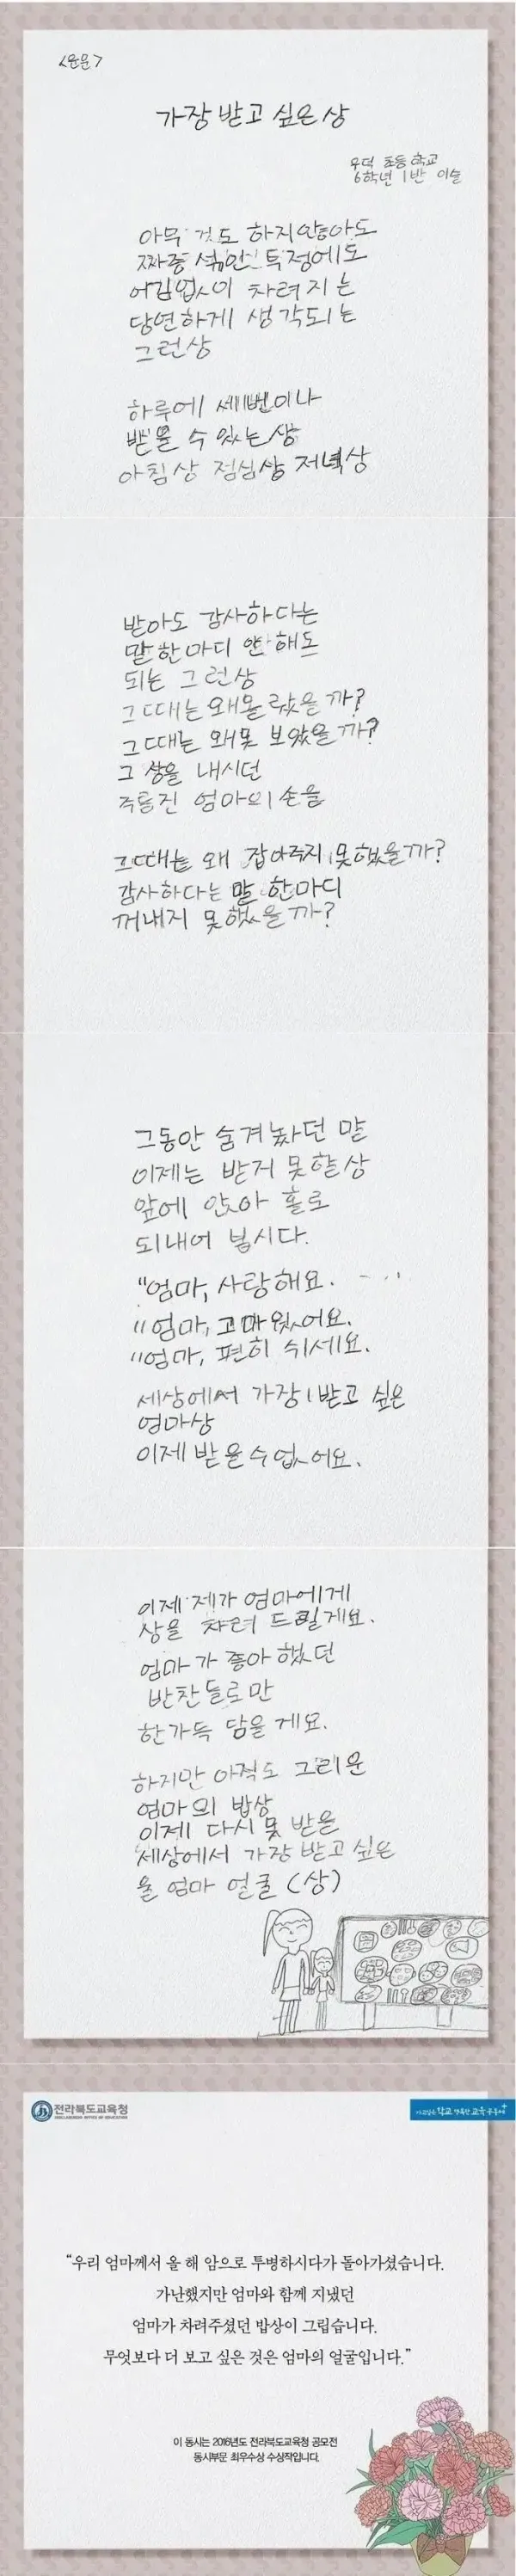 <운문>
가장 받고 싶은 상
우덕 초등학교
6학년 1반 이슬
아무 것도 하지 않아도
짜증 섞인 투정에도
어김없이 차려지는
당연하게 생각되는
그런상
하루에 세번이나
받을 수 있는 상
아침상 점심상 저녁상
받아도 감사하다는
말 한마디 안 해도
되는 그런상
그때는 왜 몰랐을까?
그때는 왜 못 보았을까?
그 상을 내시던
주름진 엄마의 손을
그때는 왜 잡아주지 못했을까?
감사하다는 말 한마디
꺼내지 못했을까?
그동안 숨겨놨던 말
이제는 받지 못할 상
앞에 앉아 홀로
되내어 봅시다.
"엄마, 사랑해요. - ...
"엄마, 고마웠어요.
"엄마, 편히 쉬세요.
세상에서 가장 받고 싶은
엄마상
이제 받을수 없어요.
이제 제가 엄마에게
상을 차려 드릴게요.
엄마가 좋아했던
반찬들로만
한가득 담을게요.
하지만 아직도 그리운
엄마의 밥상
이제 다시 못 받을
세상에서 가장 받고 싶은
울 엄마 얼굴 (상)
전라북도교육청
JEOLLABUKDO OFFICE OF EDUCATION
가고싶은 학교 행복한 교육공동체
"우리 엄마께서 올 해 암으로 투병하시다가 돌아가셨습니다.
가난했지만 엄마와 함께 지냈던
엄마가 차려주셨던 밥상이 그립습니다.
무엇보다 더 보고 싶은 것은 엄마의 얼굴입니다."
이 동시는 2016년도 전라북도교육청 공모전
동시부문 최우수상 수상작입니다.